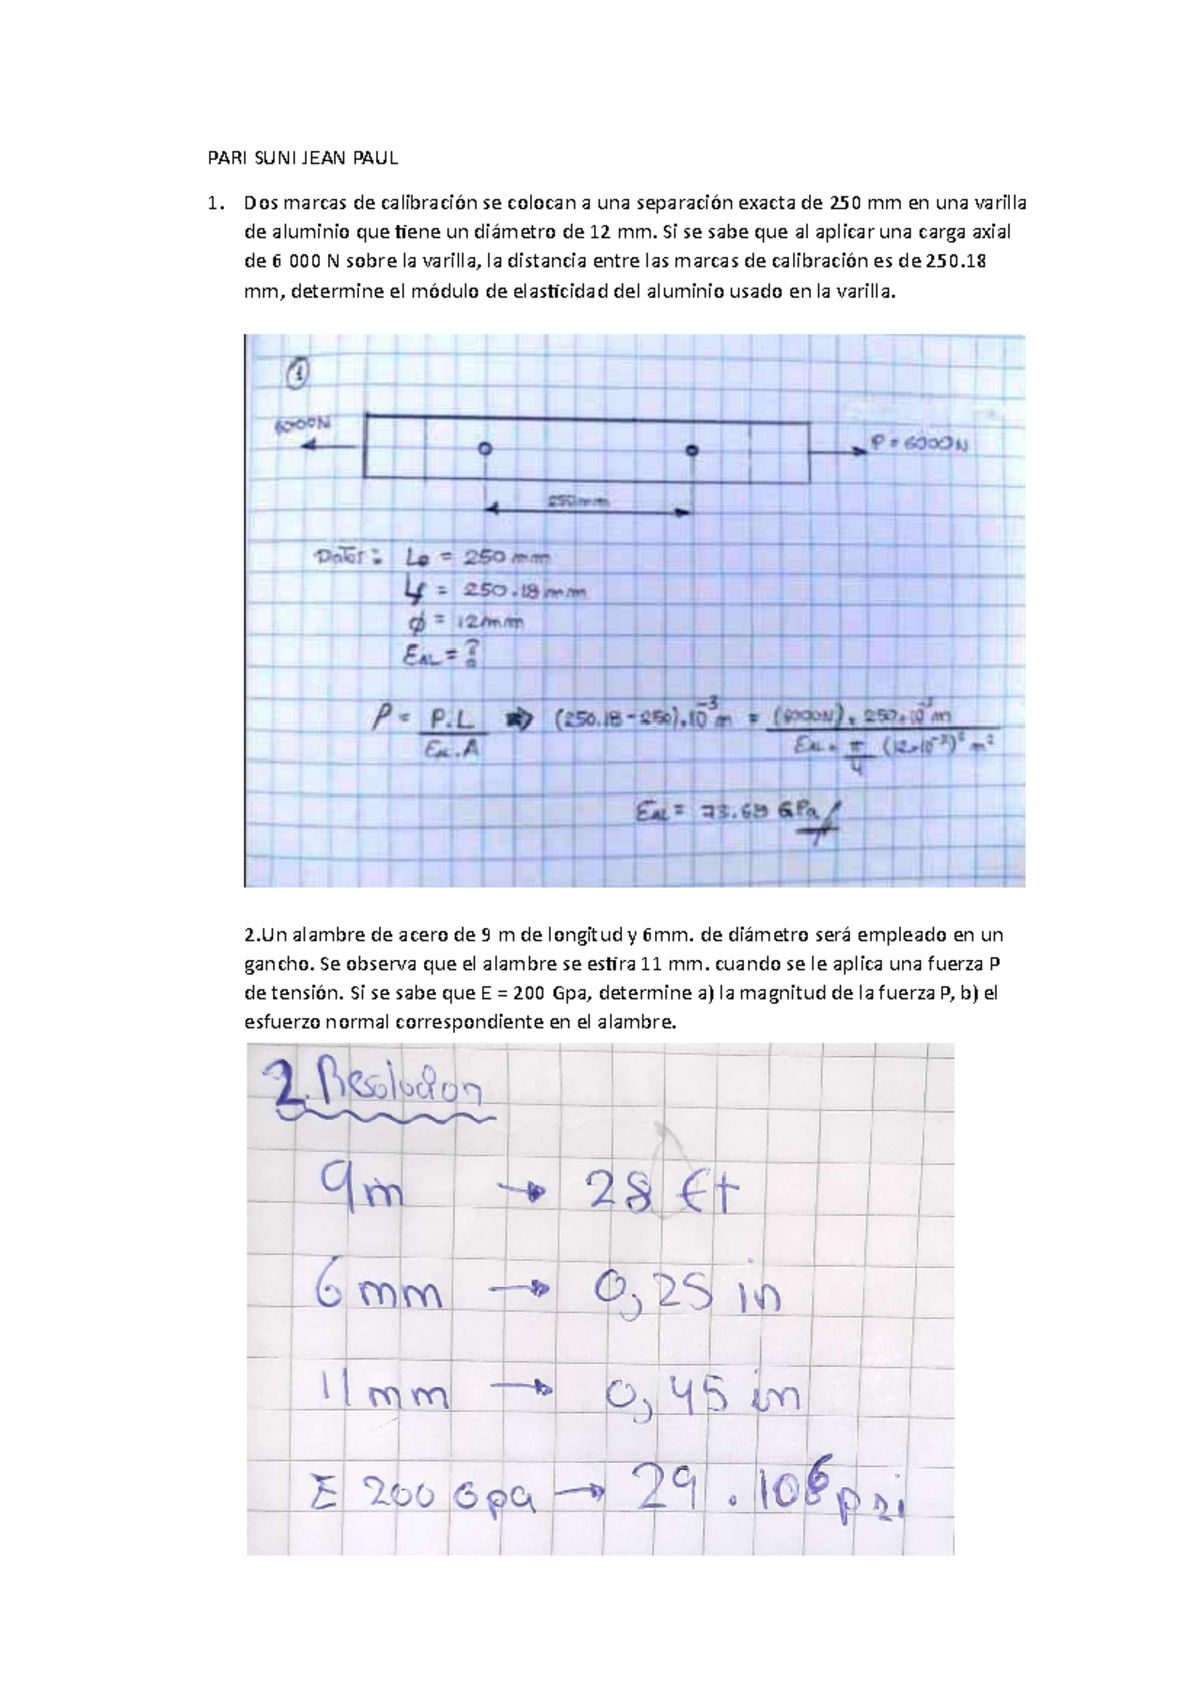 PARI SUNI JEAN PAUL
1. Dos marcas de calibración se colocan a una separación exacta de 250 mm en una varilla
de aluminio que tiene un diámetro de 12 mm. Si se sabe que al aplicar una carga axial
de 6 000 N sobre la varilla, la distancia entre las marcas de calibración es de 250.18
mm, determine el módulo de elasticidad del aluminio usado en la varilla.
1
6000N
P = 6000N
250mm
Datos: Lo = 250 mm
Lf = 250.18 mm
ϕ = 12mm
EAL = ?
P = P.L / EAL.A ⇒ (250.18 - 250).10^-3 m = (6000N). 250.10^-3 m / EAL. π/4 (12.10^-3)^2 m^2
EAL = 73.69 GPa
2.Un alambre de acero de 9 m de longitud y 6mm. de diámetro será empleado en un
gancho. Se observa que el alambre se estira 11 mm. cuando se le aplica una fuerza P
de tensión. Si se sabe que E = 200 Gpa, determine a) la magnitud de la fuerza P, b) el
esfuerzo normal correspondiente en el alambre.
2. Resolucion
9m → 28 ft
6 mm → 0,25 in
11 mm → 0,45 in
Σ 200 Gpa → 29 . 10^6 psi